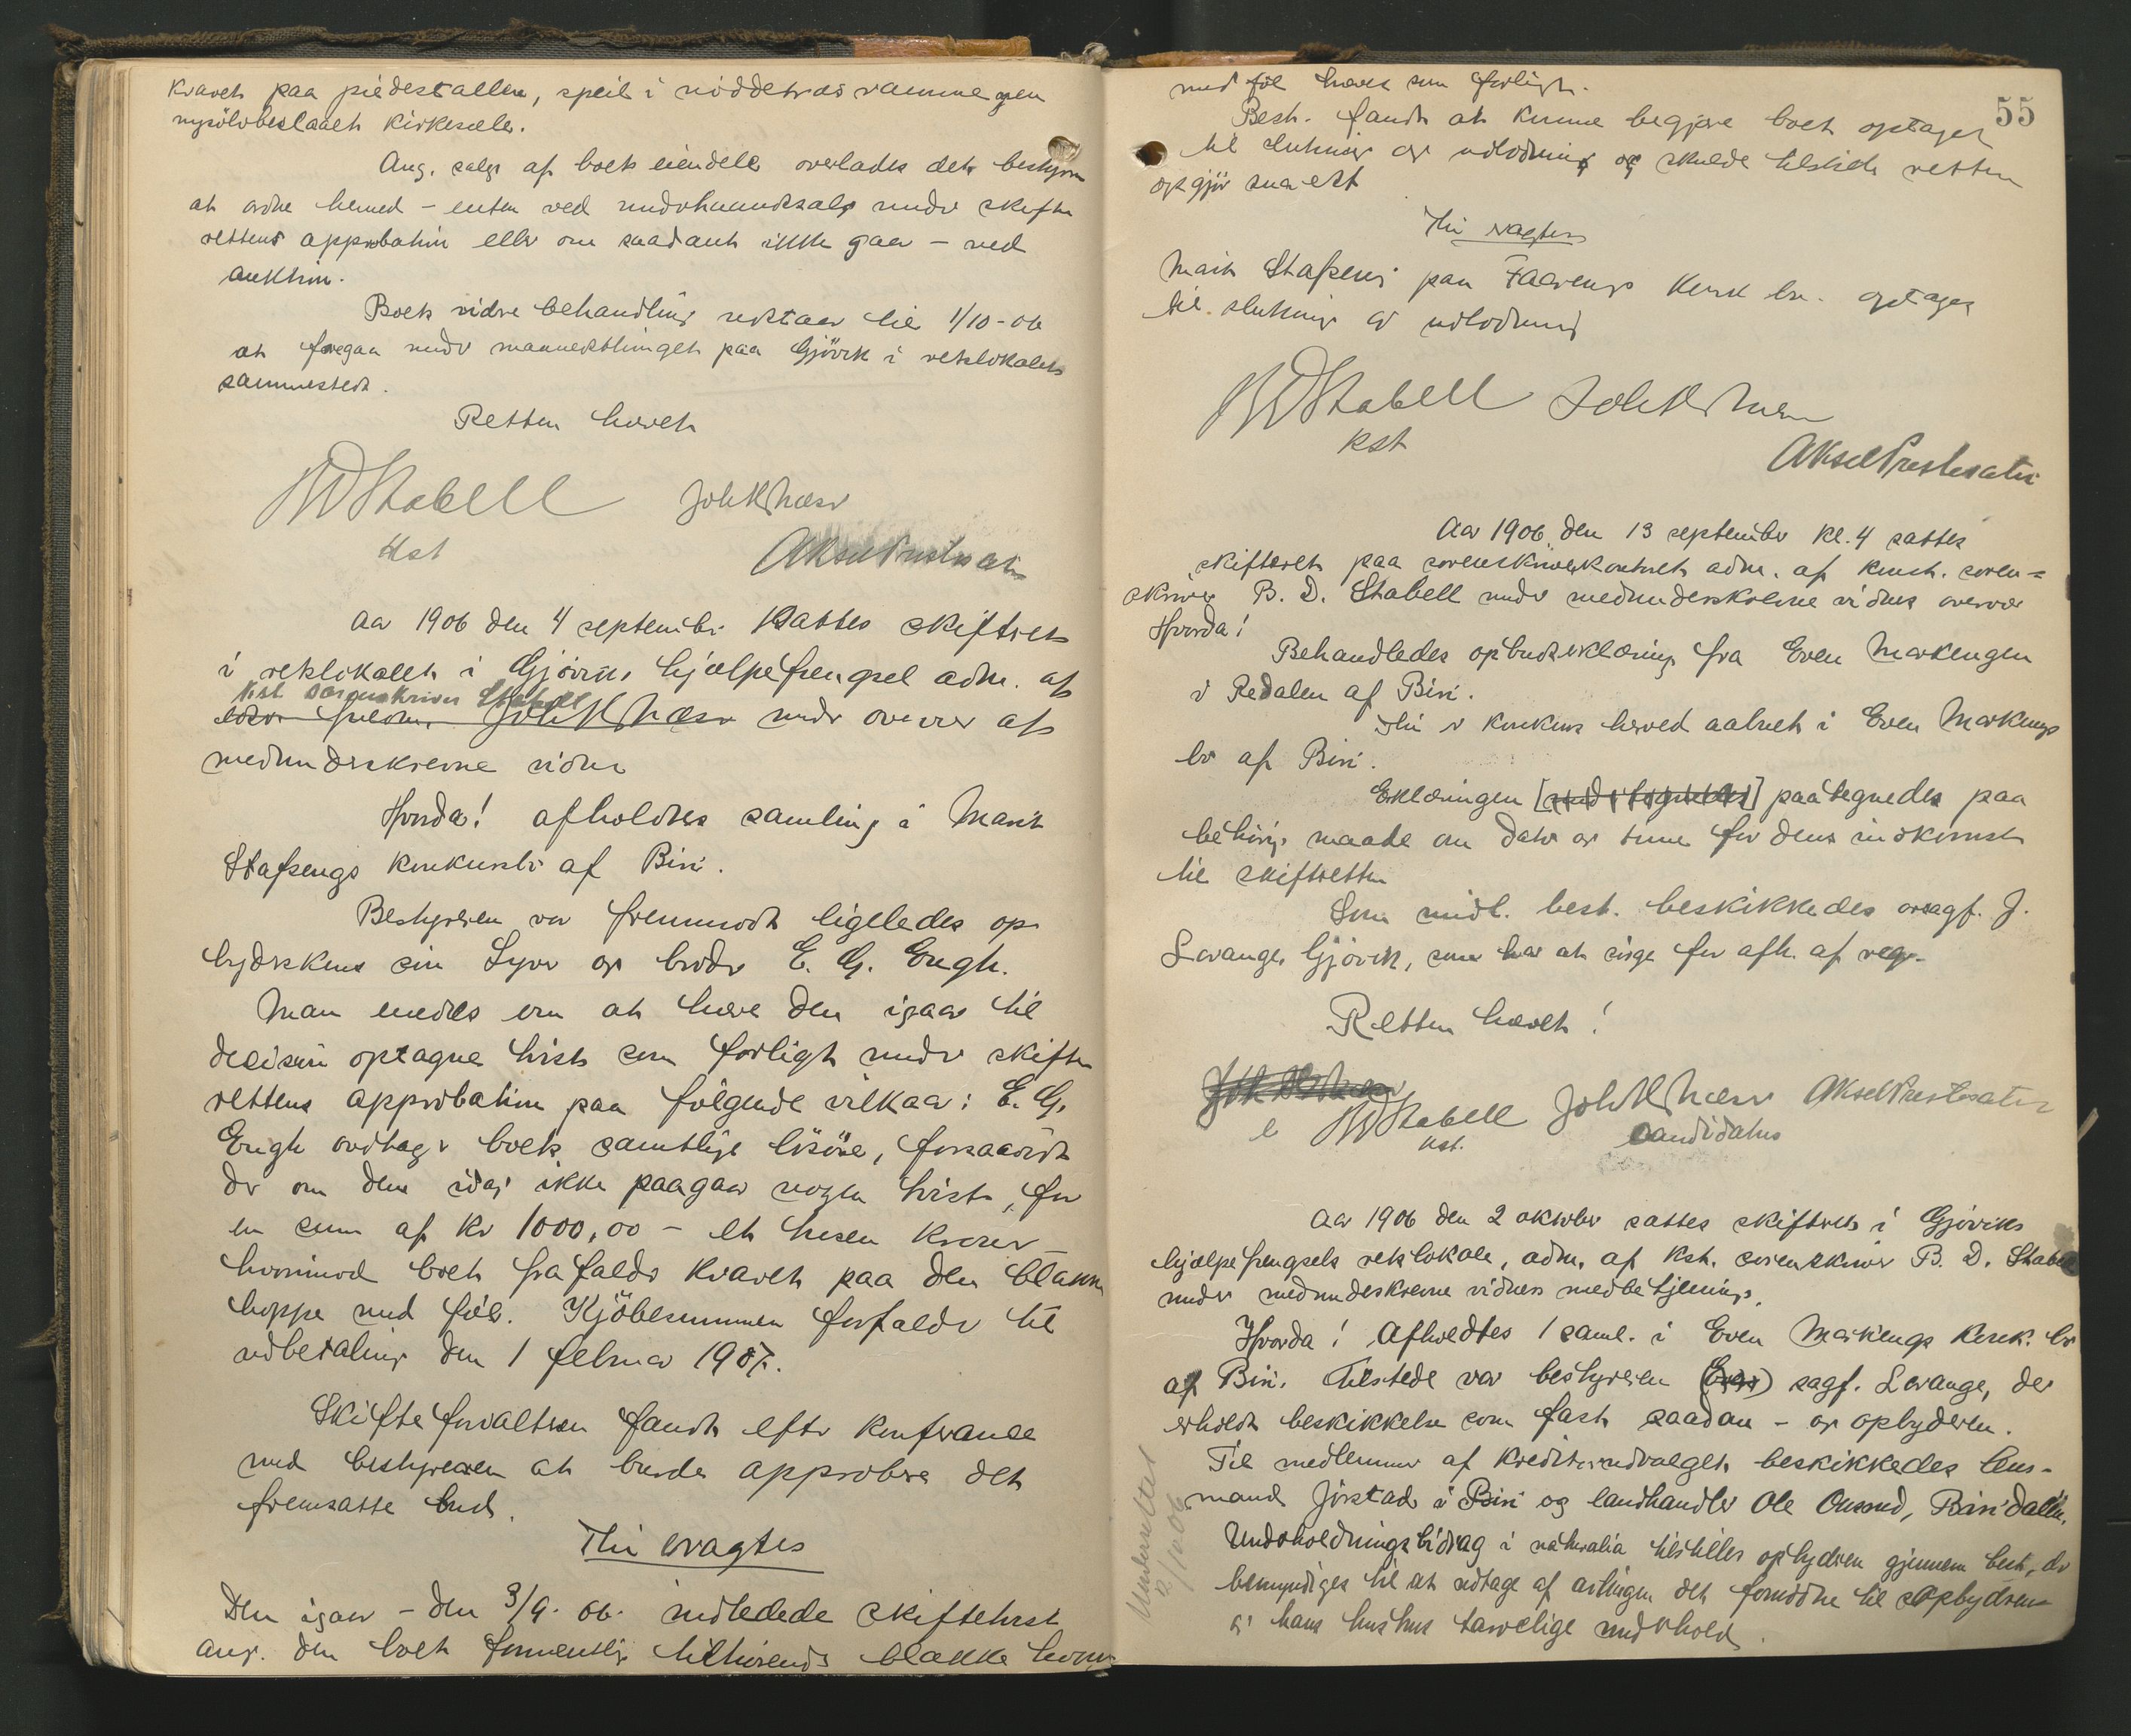 kravet paa piedestallen, speil i nöddetræs ramme og en
nysölvbeslaaet kirkesele.
Ang. salg af boets eiendele overlades det bestyren
at ordne hermed - enten ved underhaandssalg under skifte
rettens approbation eller om saadant ikke gaar - ved
auktion.
Boets videre behandling udstaar til 1/10-06
at foregaa under mannedsthinget paa Gjövik i retslokalet
sammesteds.
Retten hævet
BDStabell Joh K Næss
kst Aksel Prestesæter
Aar 1906 den 4 september sattes skifteret
i retslokalet i Gjöviks hjælpefængsel adm. af
kst sorenskriver Stabell
Joh K Næss under overvær af
medunderskrevne vidne
Hvorda! afholdtes samling i Marit
Stafsengs konkursbo af Biri.
Bestyreren var fremmödt ligeledes op
byderskens sin Lyver og broder E. G. Engh.
Man enedes om at hæve den igaar til
decision optagne tvist som forligt under skifte
rettens approbation paa fölgende vilkaar: E. G.
Engh overtager boets samtlige lösöre, forsaavidt
der om dem idag ikke paagaar nogen tvist, for
en sum af Kr 1000,00 - et tusen kroner -
hvorimod boet frafalder kravet paa den blakke
hoppe med föl. Kjöbesummen forfalder til
udbetaling den 1 februar 1907.
Skifteforvalteren fandt efter konferance
med bestyreren at burde approbere det
fremsatte bud.
Thi eragtes
Den igaar - den 3/9. 06. indledede skiftetvist
ang. den boet formentlig tilhörende blakke hoppe
55
med föl hæves som forligt.
Best. fandt at kunne begjære boet optaget
til slutning og udlodning og skulde tilstille retten
opgjör snarest
Thi eragtes
Marit Stafseng paa Faarengs konk bo. optages
til slutning og udlodning
BDStabell Joh K Næss
kst
Aksel Prestesæter
Aar 1906 den 13 september kl. 4 sattes
skifteret paa sorenskriverkontoret adm. af konst. soren=
skriver B. D. Stabell under medunderskrevne vidners overvær
Hvorda!
Behandledes opbudserklæring fra Even Markengen
i Redalen af Biri.
Thi er konkurs herved aabnet i Even Markengs
bo af Biri.
Erklæringen [ ] paategnedes paa
behörig maade om dato og time for dens indkomst
til skifteretten
Som midl. best. beskikkedes orsagf. J.
Levange, Gjövik, som har at sörge for afh. af reg.
Retten hævet!
BDStabell Joh K Næss Aksel Prestesæter
kst. candidatus
Aar 1906 den 2 oktober sattes skifteret i Gjöviks
hjælpefængsels retslokale, adm. af kst. sorenskriver B. D. Stabell
under medunderskrevne vidners medbetjening.
Hvorda! Afholdtes 1 saml. i Even Markengs konk. bo
af Biri. Tilstede var bestyreren sagf. Levange, der
erholdt beskikkelse som fast saadan - og opbyderen.
Til medlemmer af kreditorudvalget beskikkedes lens-
mand Jörstad i Biri og landhandler Ole Onsrud, Biridalen.
Underholdningsbidrag i naturalia tilstilles opbyderen gjennem best., der
bemyndiges til at udtage af avlingen det fornödne til opbyderens
og hans hustrus tarvelige underhold.
Underrettet
2/10 06